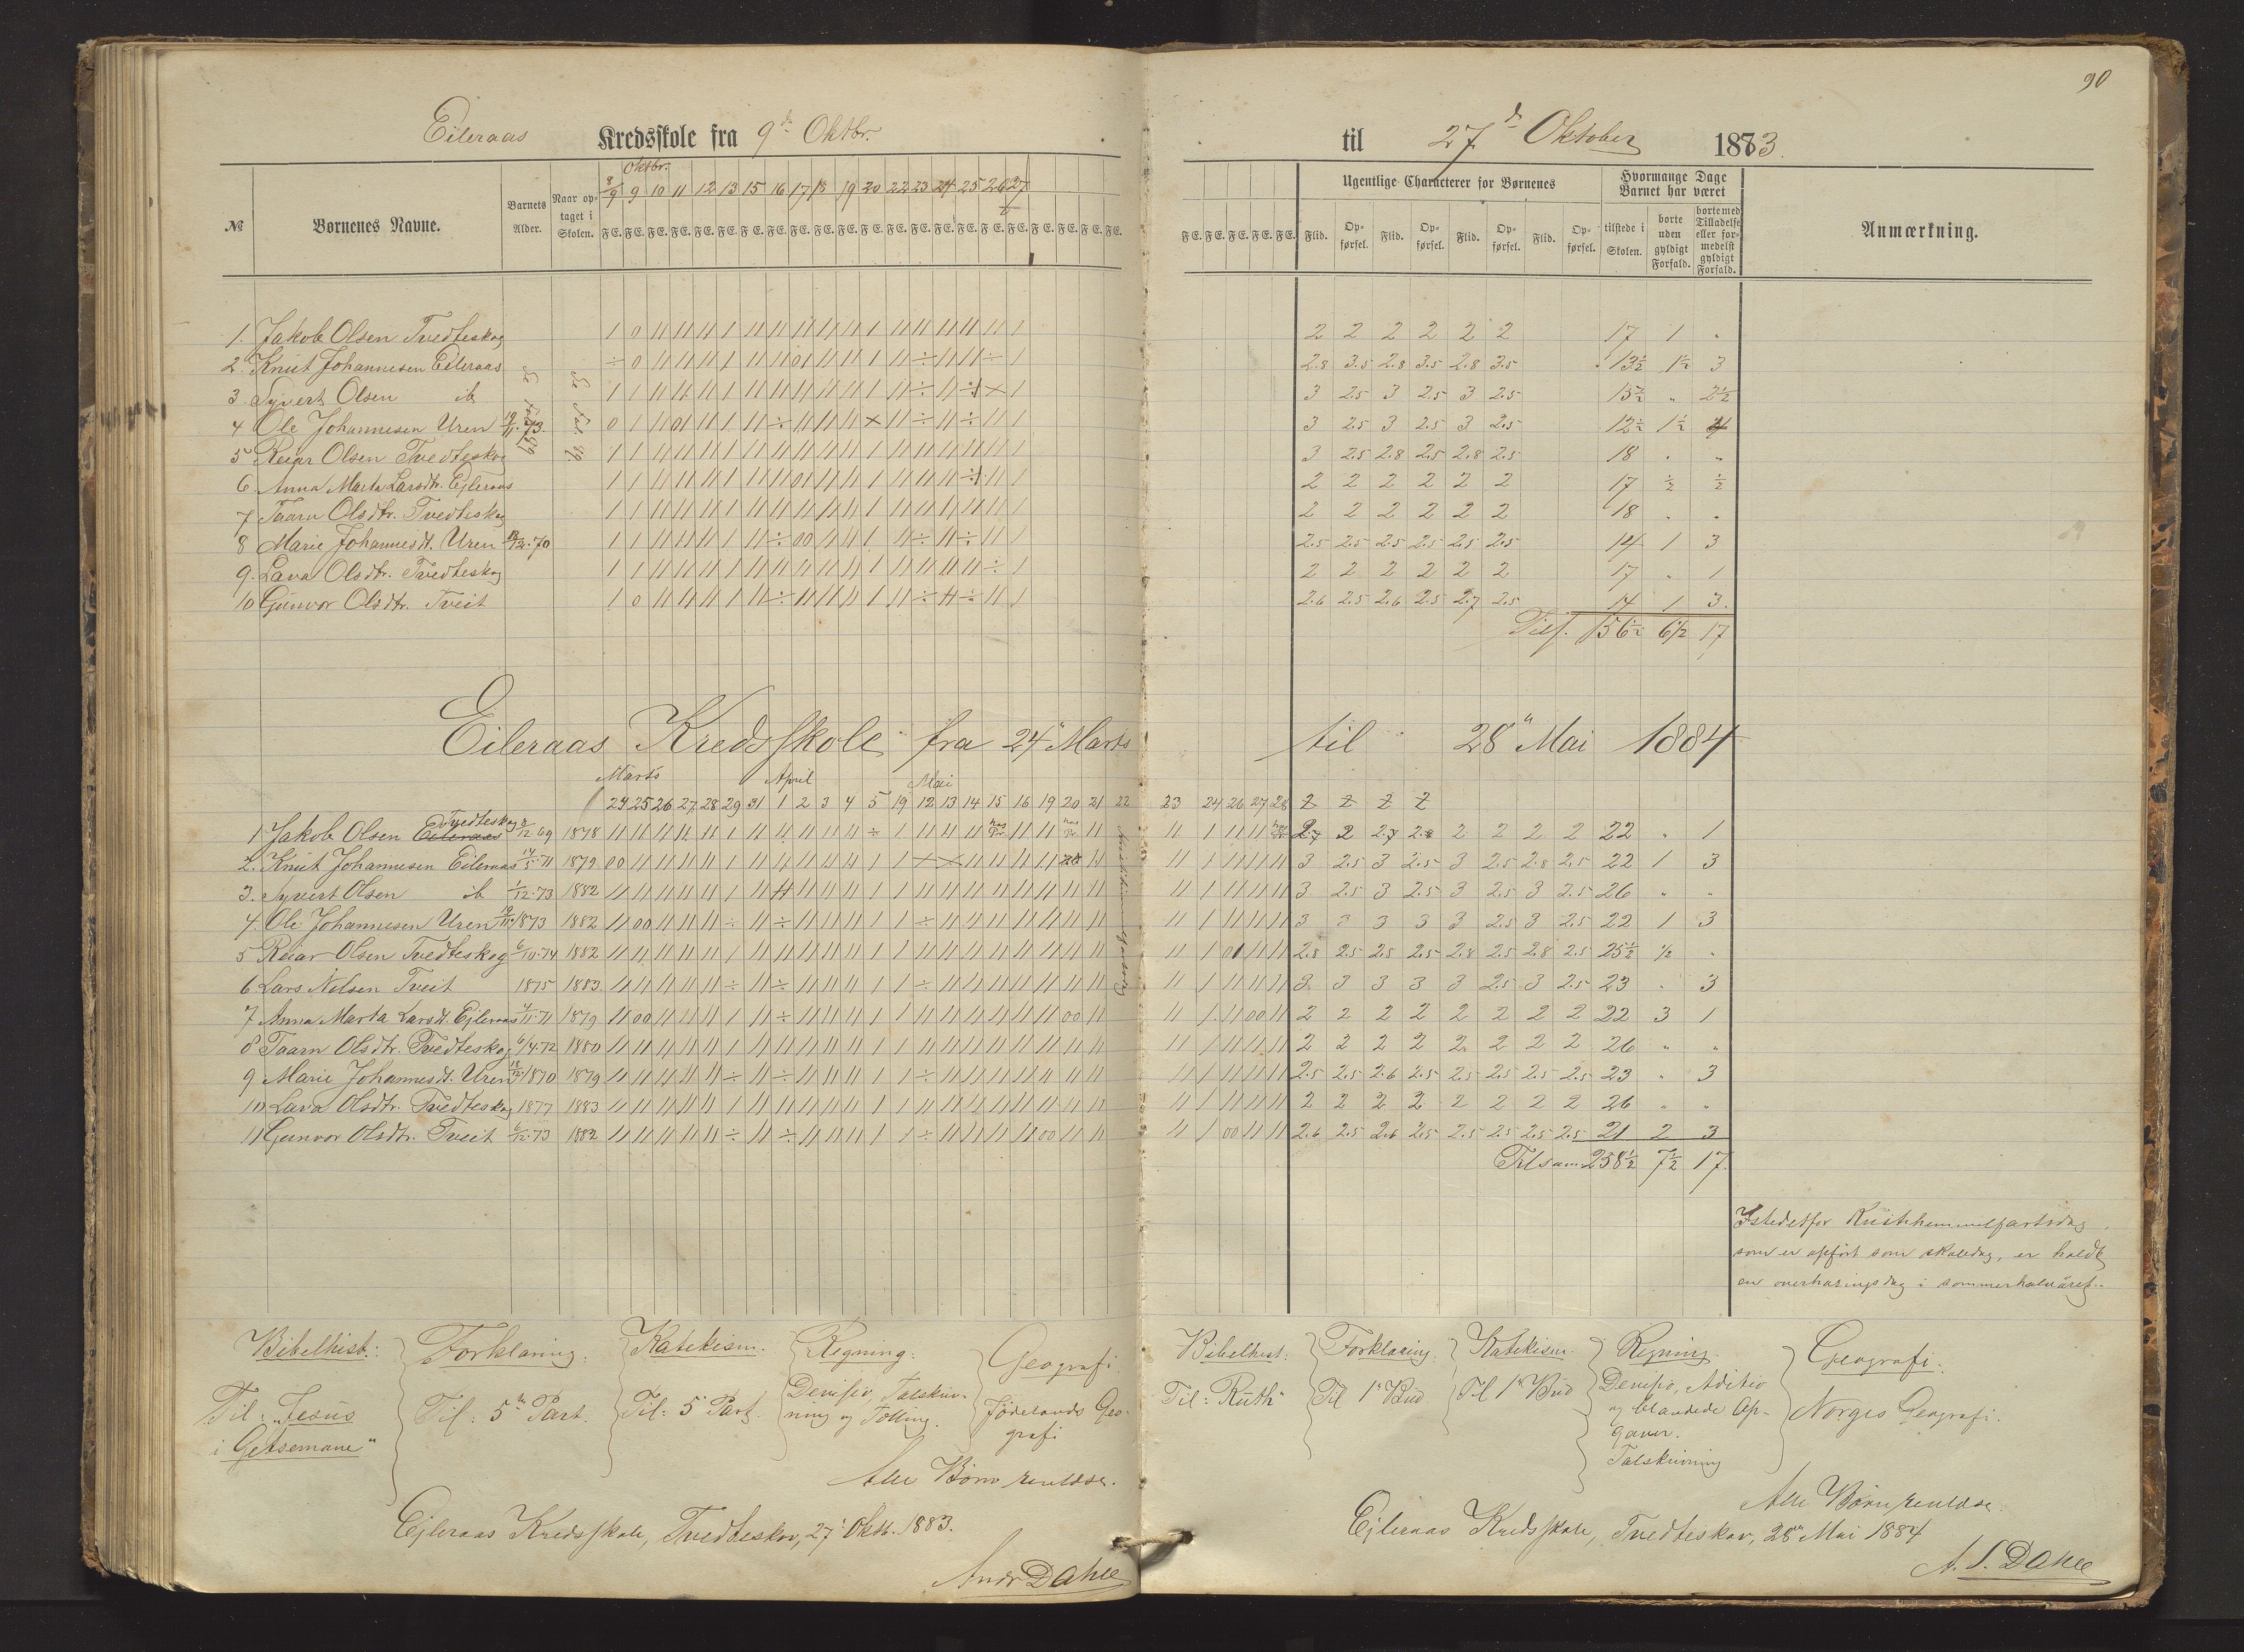 90
Eileraas Kredsskole fra 9de Oktbr. til 27de Oktober 1883.
№ Børnenes Navne. Barnets Alder. Naar optaget i Skolen. Oktbr. 8/9 9 10 11 12 13 15 16 17 18 19 20 22 23 24 25 26 27
F E. F E. F E. F E. F E. F E. F E. F E. F E. F E. F E. F E. F E. F E. F E. F E. F E. F E. F E. F E. F E. F E.
F E. F E. F E. F E. F E. Ugentlige Characterer for Børnenes Flid. Opførsel. Flid. Opførsel. Flid. Opførsel. Flid. Opførsel.
Hvormange Dage Barnet har været tilstede i Skolen. borte uden gyldigt Forfald. borte med Tilladelse eller formedelst gyldigt Forfald. Anmærkning.
1. Jakob Olsen Tvedteskog 2 2 2 2 2 2 17 1 "
2. Knut Johannesen Eileraas 2.8 3.5 2.8 3.5 2.8 3.5 13½ 1½ 3
3. Syvert Olsen ib 3 2.5 3 2.5 3 2.5 15½ " 2½
4 Ole Johannesen Uren 19/11.73. 3 2.5 3 2.5 3 2.5 12½ 1½ 4
5 Reiar Olsen Tvedteskog 3 2.5 2.8 2.5 2.8 2.5 18 " "
6. Anna Marta Larsdtr. Ejleraas 2 2 2 2 2 2 17 ½ ½
7 Taarn Olsdtr. Tvedteskog 2 2 2 2 2 2 18 " "
8 Marie Johannesdt. Uren 18/12.70 2.5 2.5 2.5 2.5 2.5 2.5 14 1 3
9. Lava Olsdtr. Tvedteskog 2 2 2 2 2 2 17 " 1
10 Gunvor Olsdtr. Tveit 2.6 2.5 2.6 2.5 2.7 2.5 14 1 3.
Tils. 156½ 6½ 17
Eileraas Kredsskole fra 24de Marts til 28de Mai 1884
Marts April Mai
24 25 26 27 28 29 31 1 2 3 4 5 19 12 13 14 15 16 19 20 21 22 23 24 26 27 28
1 Jakob Olsen Tvedteskog Eileraas 2/12 69 1878 2.7 2 2.7 2.8 2 2 2 2 22 " 1
2. Knut Johannesen Eileraas 14/5.71 1879 3 2.5 3 2.5 3 2.5 2.8 2.5 22 1 3
3. Syvert Olsen ib 1/12.73 1882 3 2.5 3 2.5 3 2.5 3 2.5 26 " "
4. Ole Johannesen Uren 19/11 1873 1882 3 3 3 3 3 2.5 3 2.5 22 1 3
5 Reiar Olsen Tvedteskog 6/10.74 1882 2.8 2.5 2.8 2.5 2.8 2.5 2.8 2.5 25½ ½ "
6 Lars Nilsen Tveit 1875 1883 3 3 3 3 3 2.5 3 2.5 23 " 3
7 Anna Marta Larsdt. Ejleraas 4/11.71 1879 2 2 2 2 2 2 2 2 22 3 1
8 Taarn Olsdtr. Tvedteskog 6/4.72 1880 2 2 2 2 2 2 2 2 26 " "
9 Marie Johannesdt. Uren 18/12 1870 1879 2.5 2.5 2.6 2.5 2.5 2.5 2.5 2.5 23 " 3
10 Lava Olsdtr. Tvedteskog 1877 1883 2 2 2 2 2 2 2 2 26 " "
11 Gunvor Olsdtr. Tveit 6/12.73 1882 2.6 2.5 2.6 2.5 2.5 2.5 2.5 2.5 21 2 3
Tilsam 258½ 7½ 17.
Istedetfor Kristihimmelfartsdag
som er opført som skoledag, er holdt
en overhøringsdag i sommerhalvåret.
Bibelhist.: Forklaring: Katekism. Regning: Geografi.
Til: "Jesus i Getsemane" Til: 5te Part. Til: 5 Part. Devisio, Talskrivning og Tolling. Fødelands Geografi
Alle Børn renldse.
Ejleraas Kredsskole, Tvedteskov, 27' Oktbr. 1883.
Andr Dahle
Bibelhist. Forklaring. Katekism. Regning. Geografi.
Til: "Ruth" Til 1te Bud Til 1te Bud Devisio, Aditio og blandede Opgaver. Talskrivning Norges Geografi.
Alle Børn renldse.
Ejleraas Kredsskole, Tvedteskov, 28de Mai 1884
A. S. Dahle